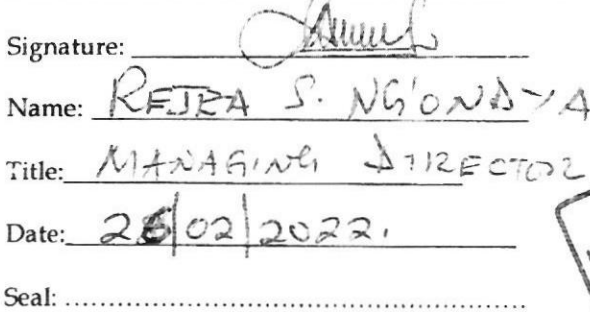 Signature:
Name: REJEA S. NG'ONDYA
Title: MANAGING DIRECTOR
Date: 26/02/2022.
Seal: ........................................................